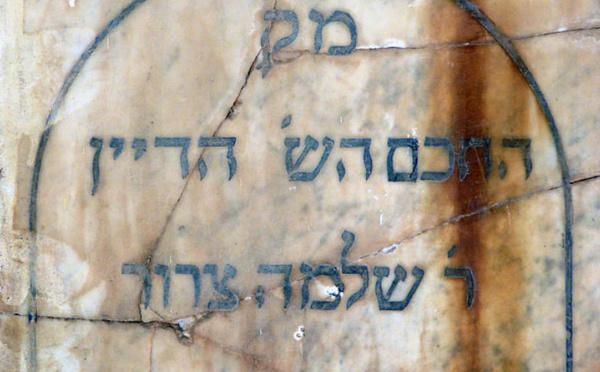 מק
החכם הש' הדיין
ר' שלמה צרור